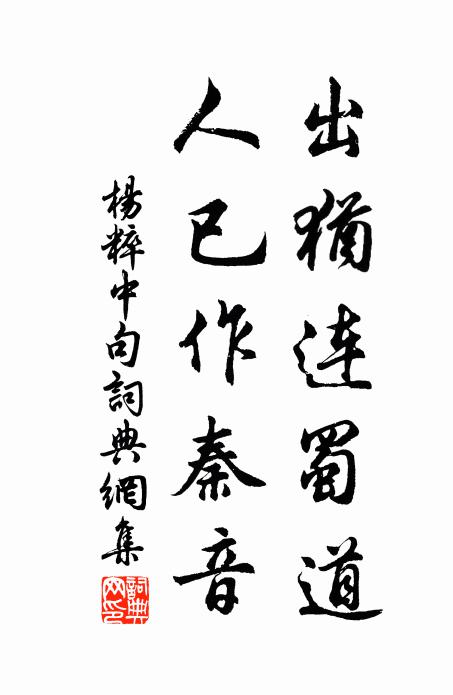 出犹連蜀道
人已作秦音
楊粹中句詞典網集
詞典网印